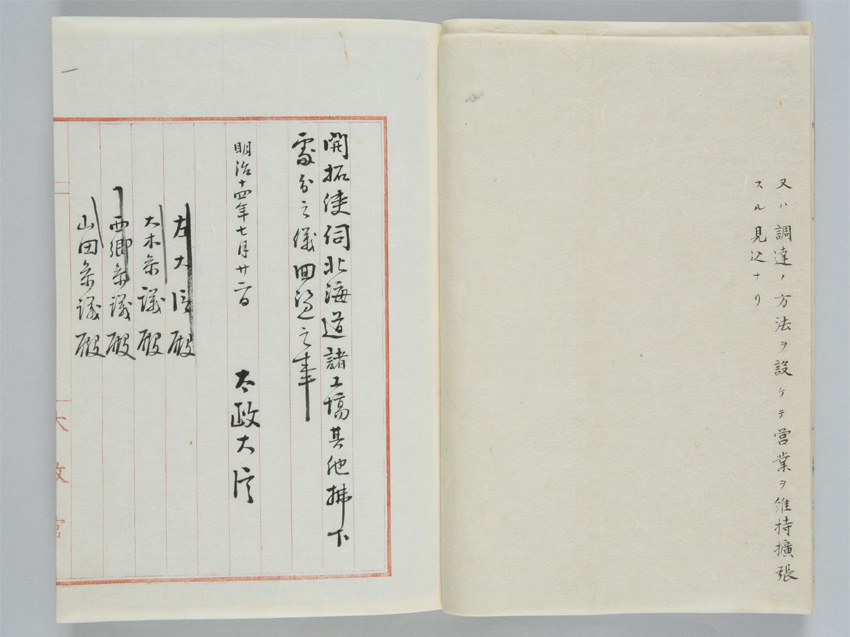 又ハ調達ノ方法ヲ設ケテ営業ヲ維持擴張
スル見込ナリ
開拓使伺北海道諸工場其他拂下
處分之儀回議之事
明治十四年七月廿 日
太政大臣
左大臣殿
大木参議殿
西郷参議殿
山田参議殿
太政官